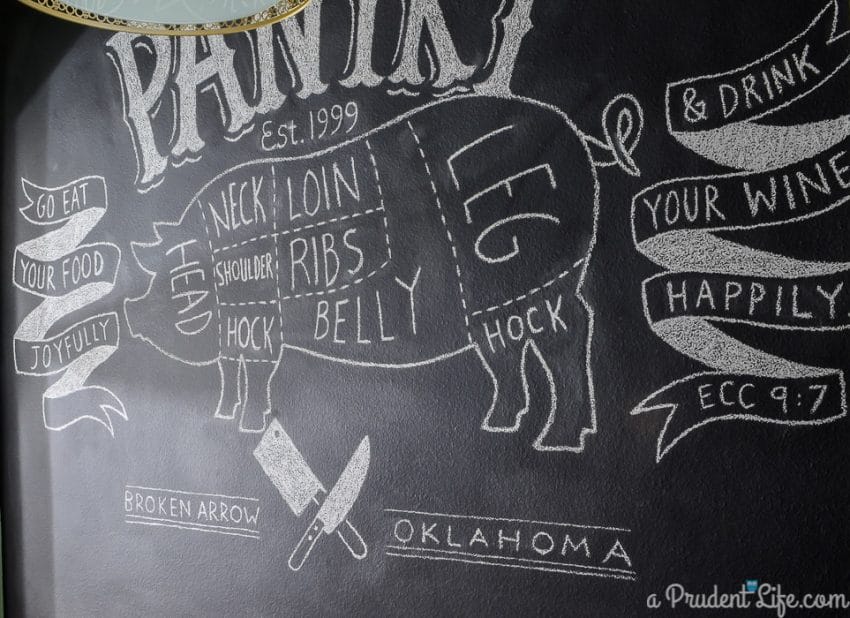 PANTRY
Est. 1999
GO EAT
YOUR FOOD
JOYFULLY
& DRINK
YOUR WINE
HAPPILY.
ECC 9:7
HEAD
NECK
LOIN
SHOULDER
RIBS
HOCK
BELLY
LEG
HOCK
BROKEN ARROW
OKLAHOMA
a Prudent Life.com